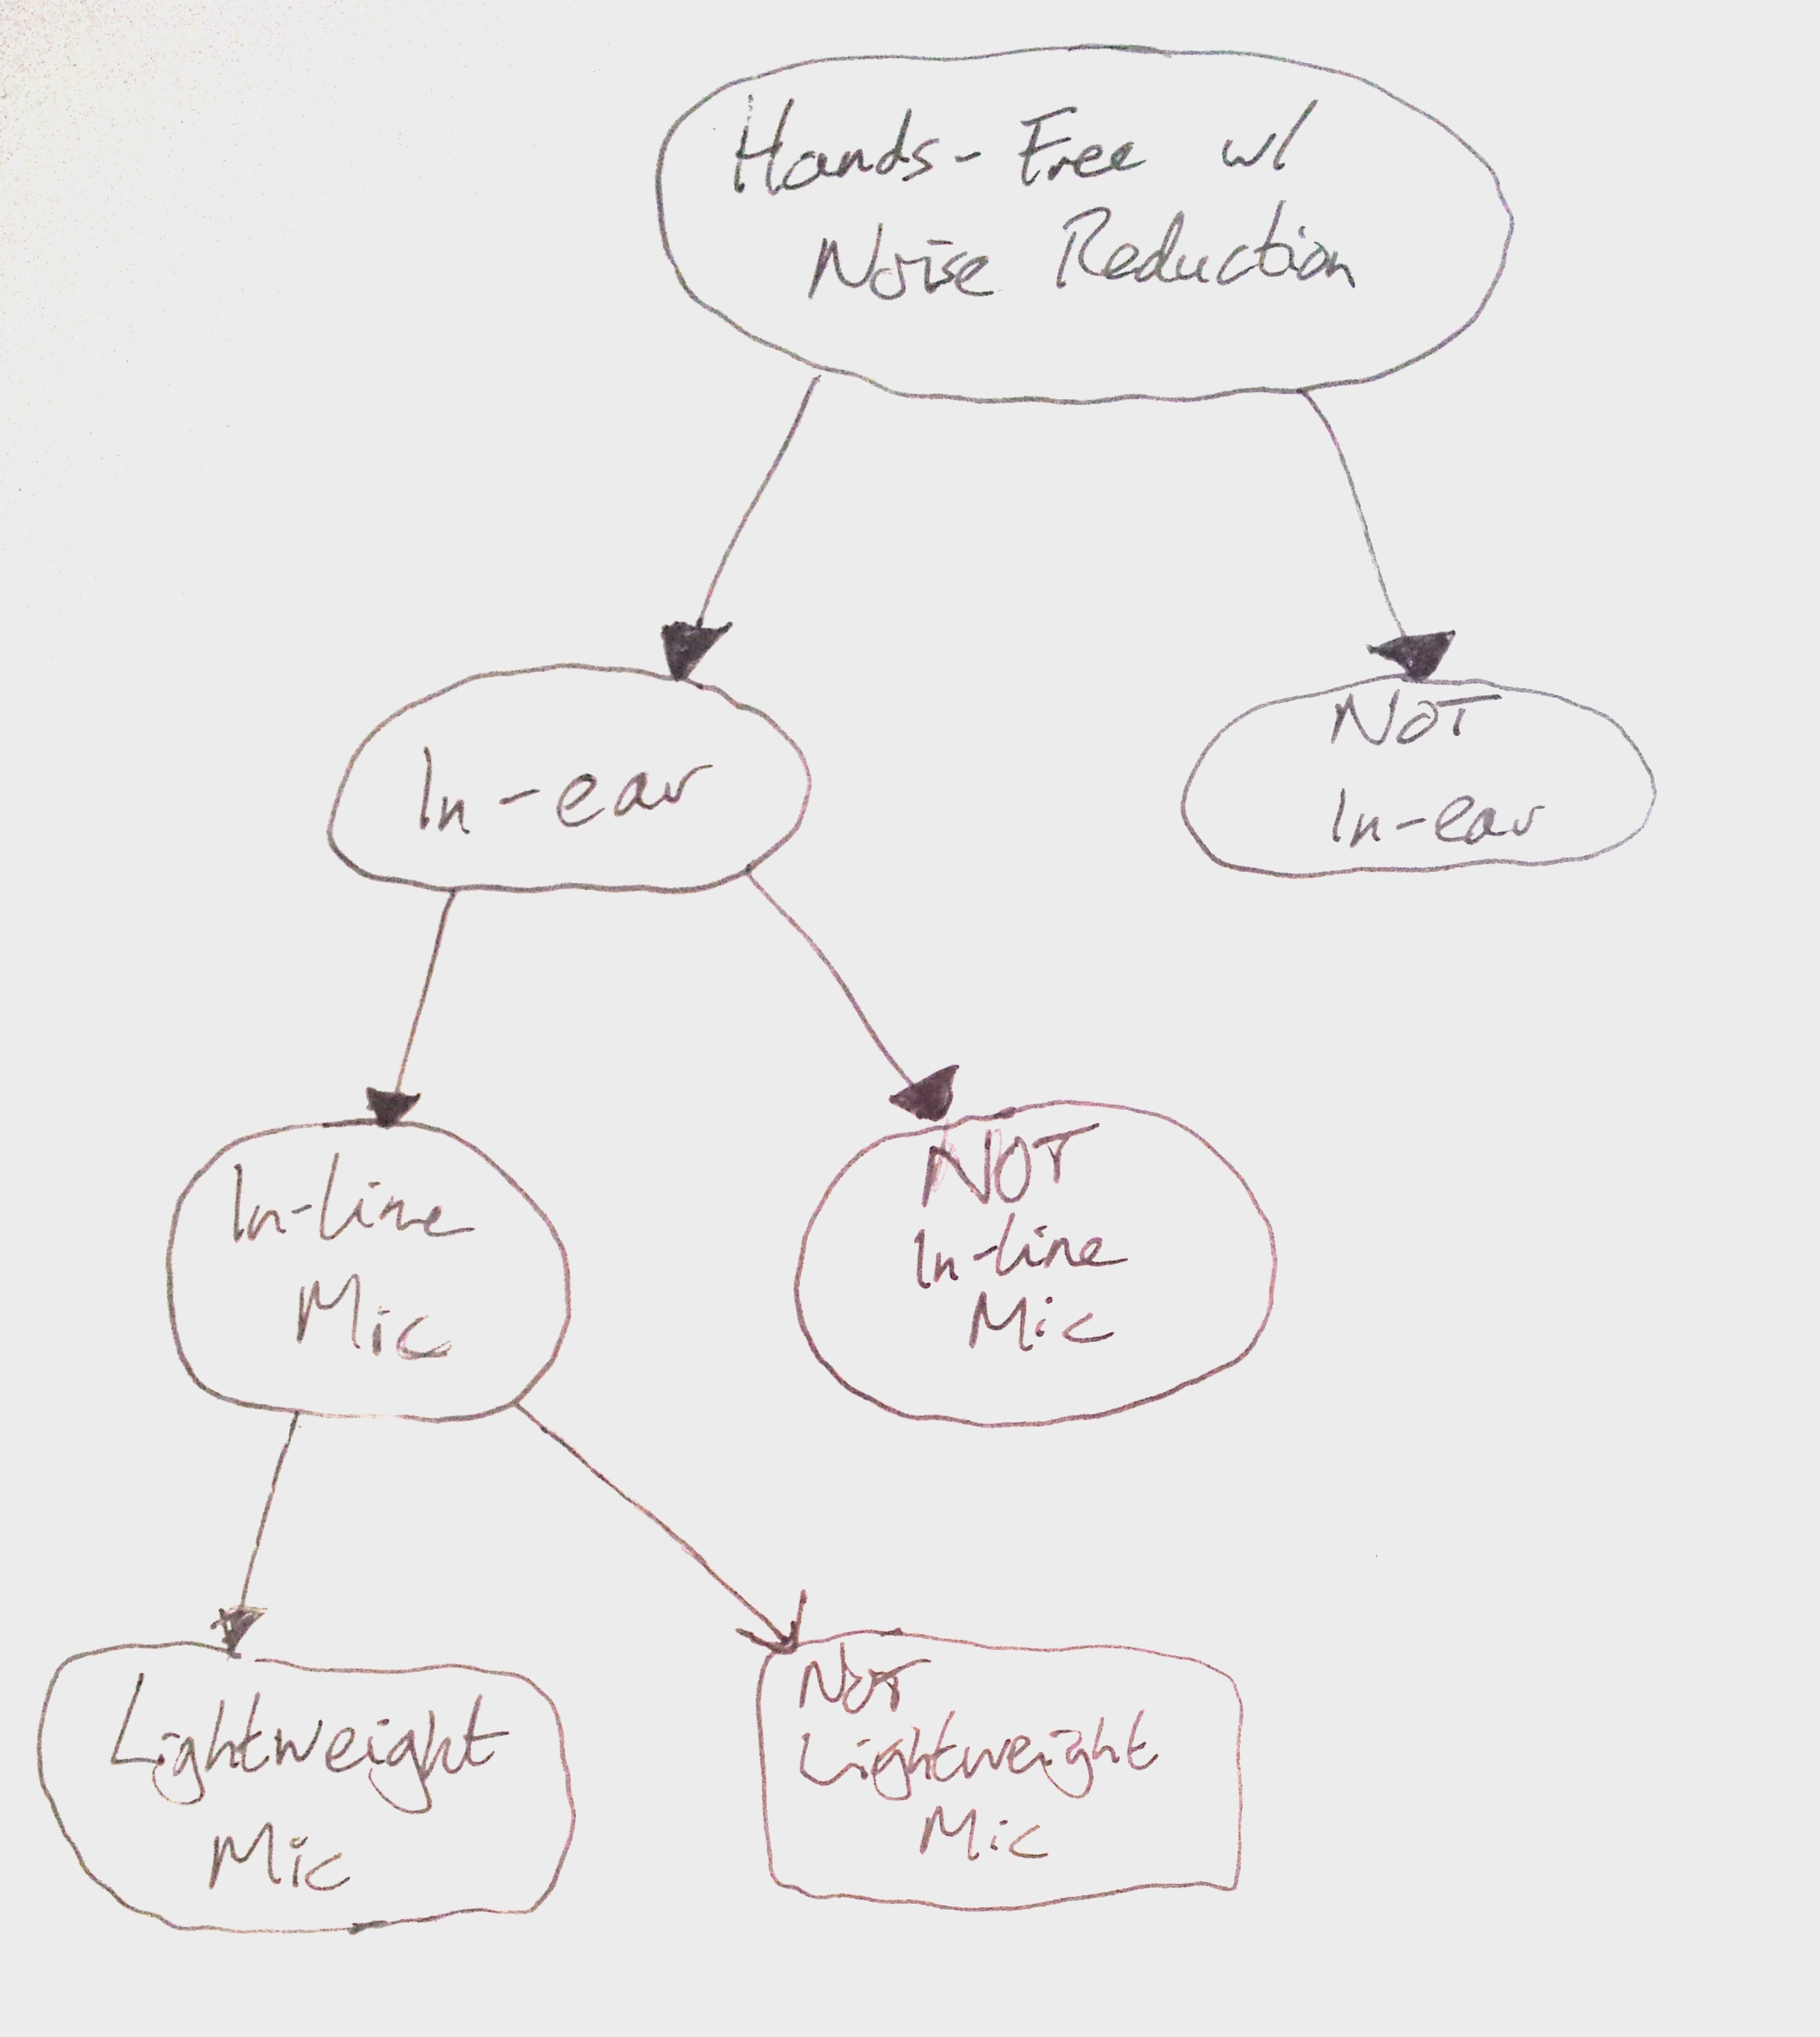 Hands-Free w/
Noise Reduction
In-ear
NOT
In-ear
In-line
Mic
NOT
In-line
Mic
Lightweight
Mic
NOT
Lightweight
Mic